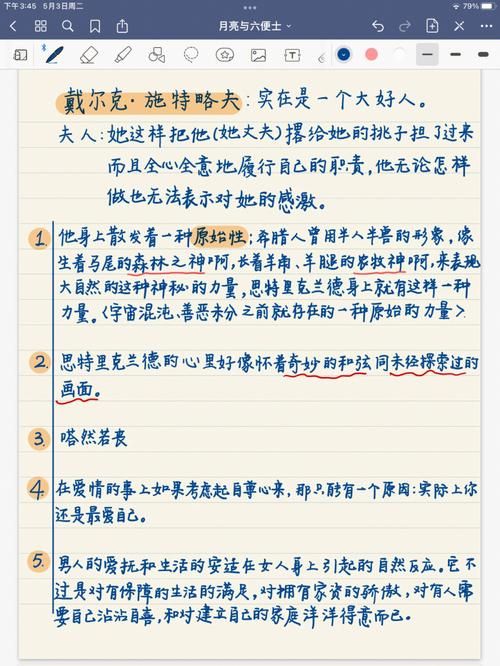 下午3:45 5月3日周二
79%
月亮与六便士
戴尔克·施特略夫:实在是一个大好人。
夫人:她这样把他(她丈夫)撂给她的挑子担了过来
而且全心全意地履行自己的职责,他无论怎样
做也无法表示对她的感激。
1. 他身上散发着一种原始性;希腊人曾用半人半兽的形象,像
生着马尾的森林之神啊,长着羊角、羊腿的农牧神啊,来表现
大自然的这种神秘的力量,思特里克兰德身上就有这样一种
力量。〈宇宙混沌、善恶未分之前就存在的一种原始的力量〉
2. 思特里克兰德的心里好像怀着奇妙的和弦同未经探索过的
画面。
3. 嗒然若丧
4. 在爱情的事上如果考虑起自尊心来,那只能有一个原因:实际上你
还是最爱自己。
5. 男人的爱抚和生活的安适在女人身上引起的自然反应。它不
过是对有保障的生活的满足,对拥有家资的骄傲,对有人需
要自己沾沾自喜,和对建立自己的家庭洋洋得意而已。